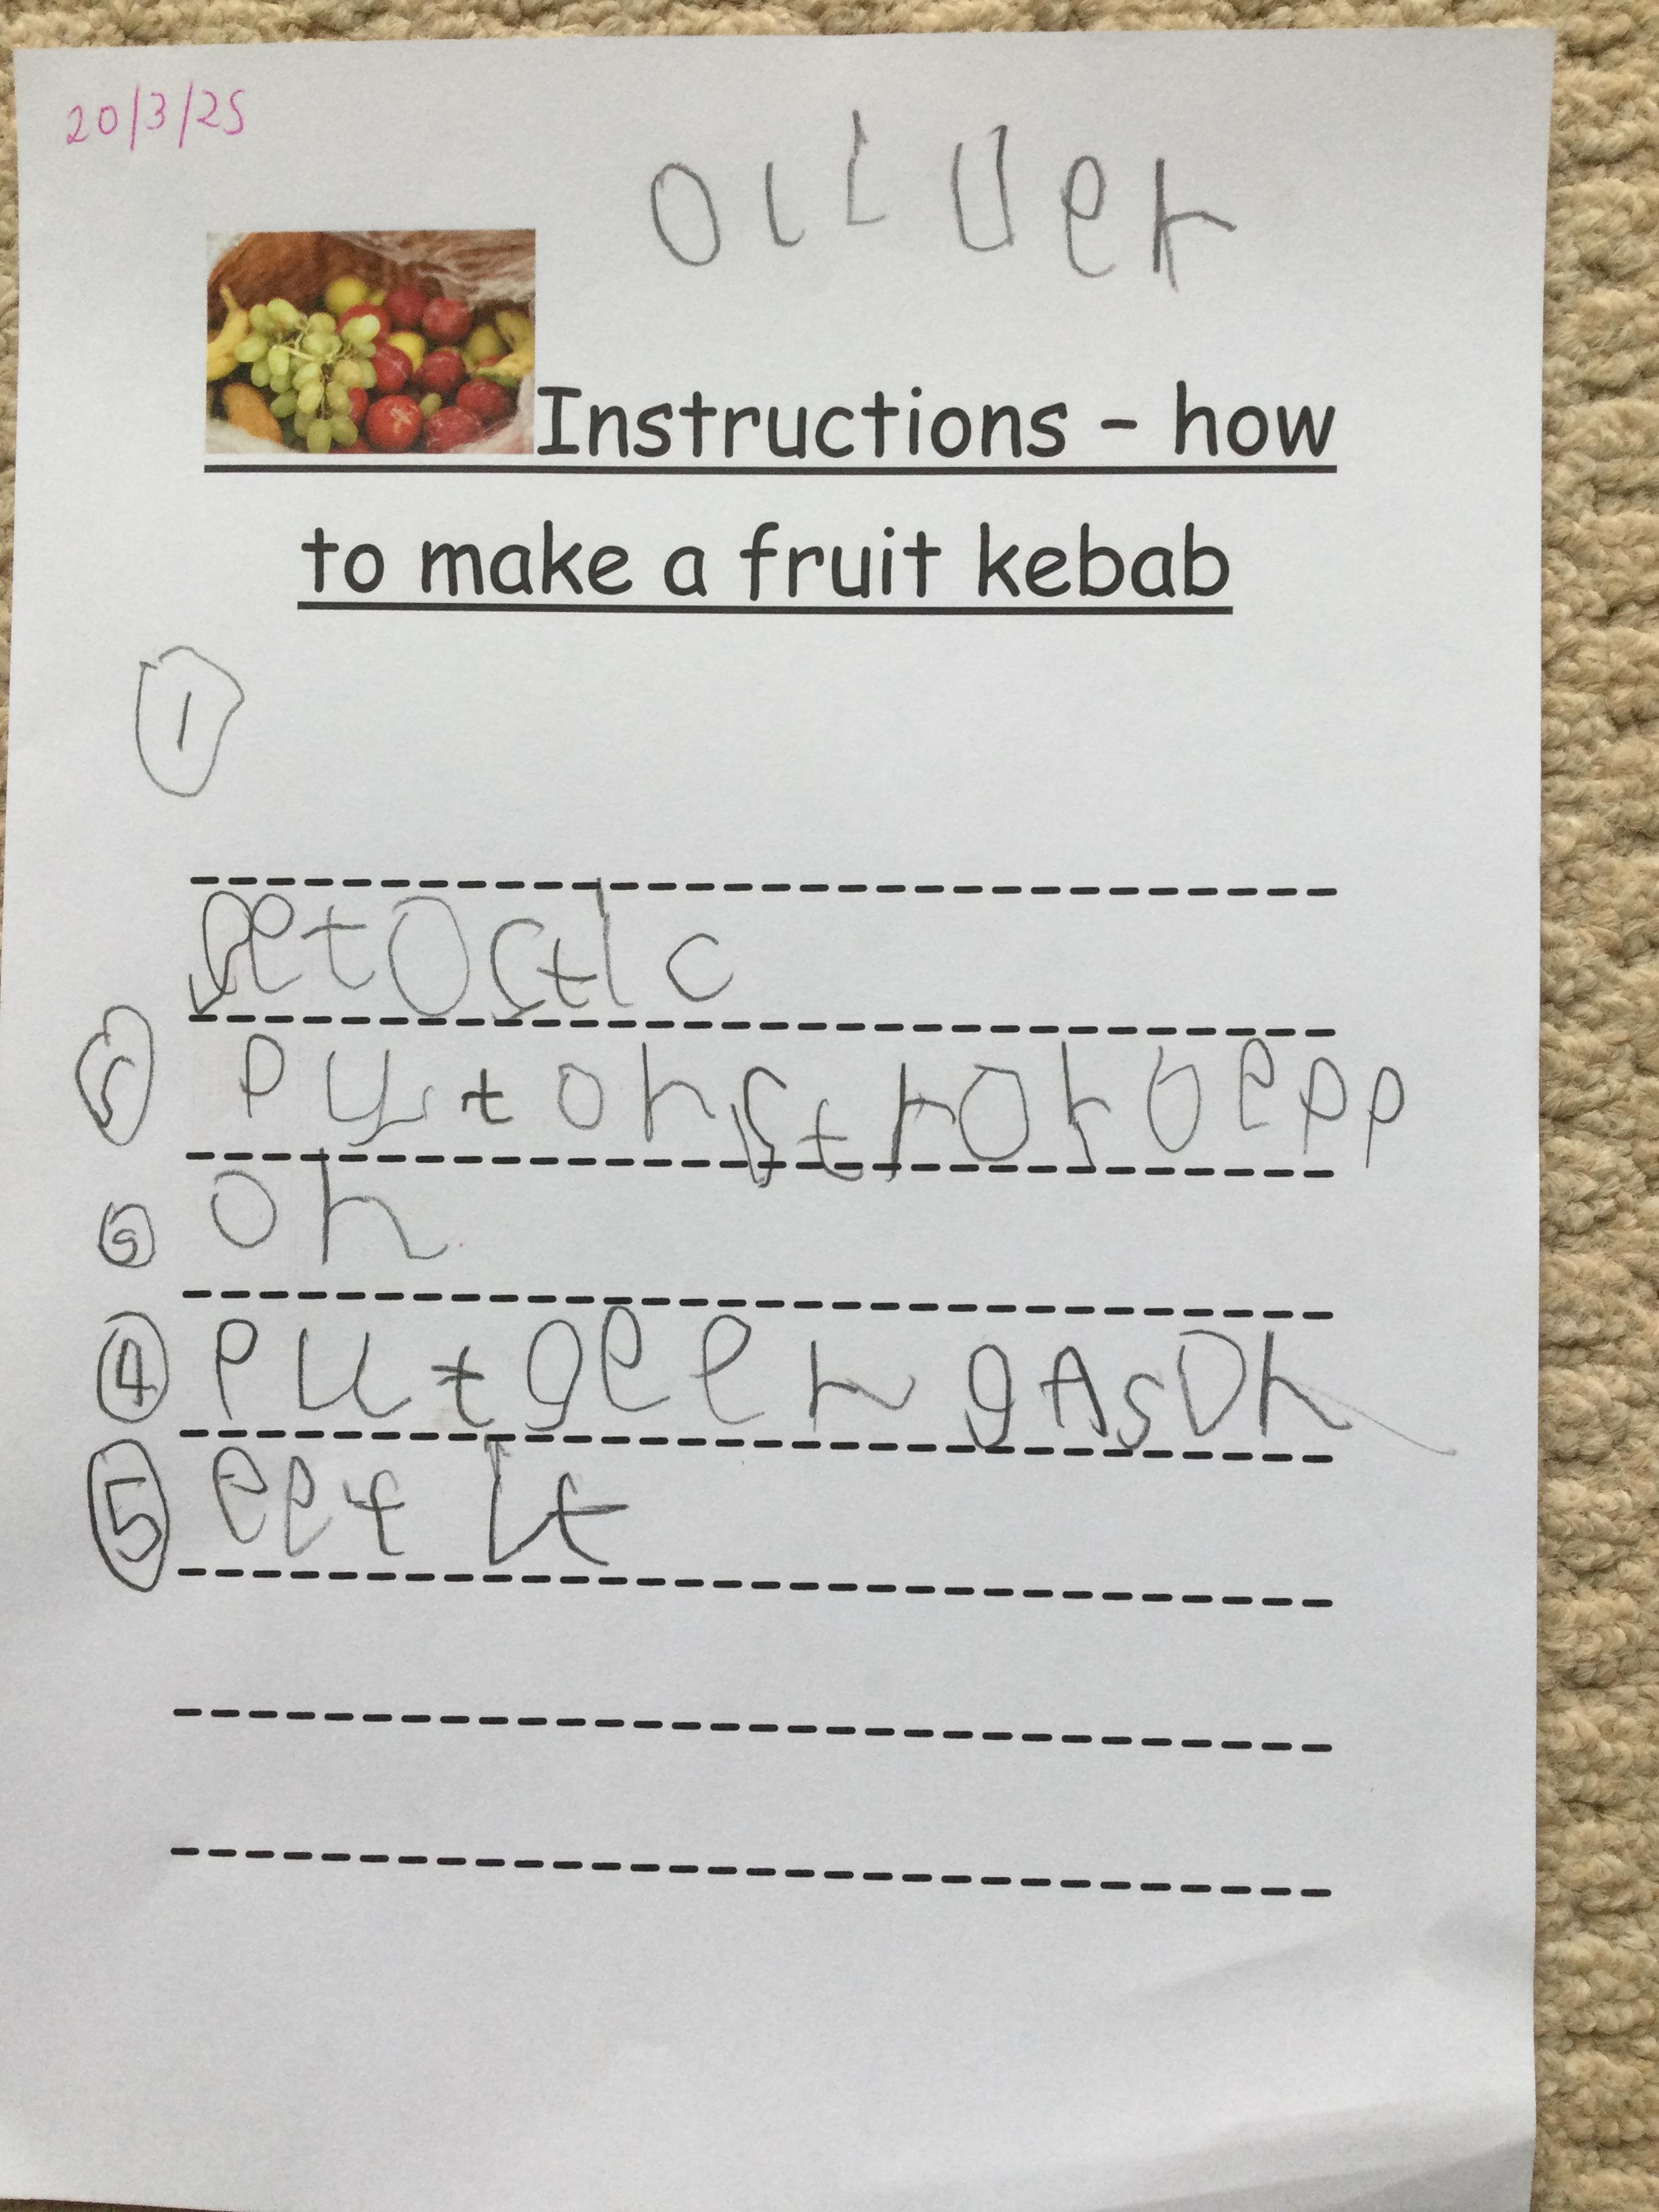 20/3/25
oliver
Instructions – how
to make a fruit kebab
1
get O stic
put on stroroepp
on
4 put geen gAson
5 eet it